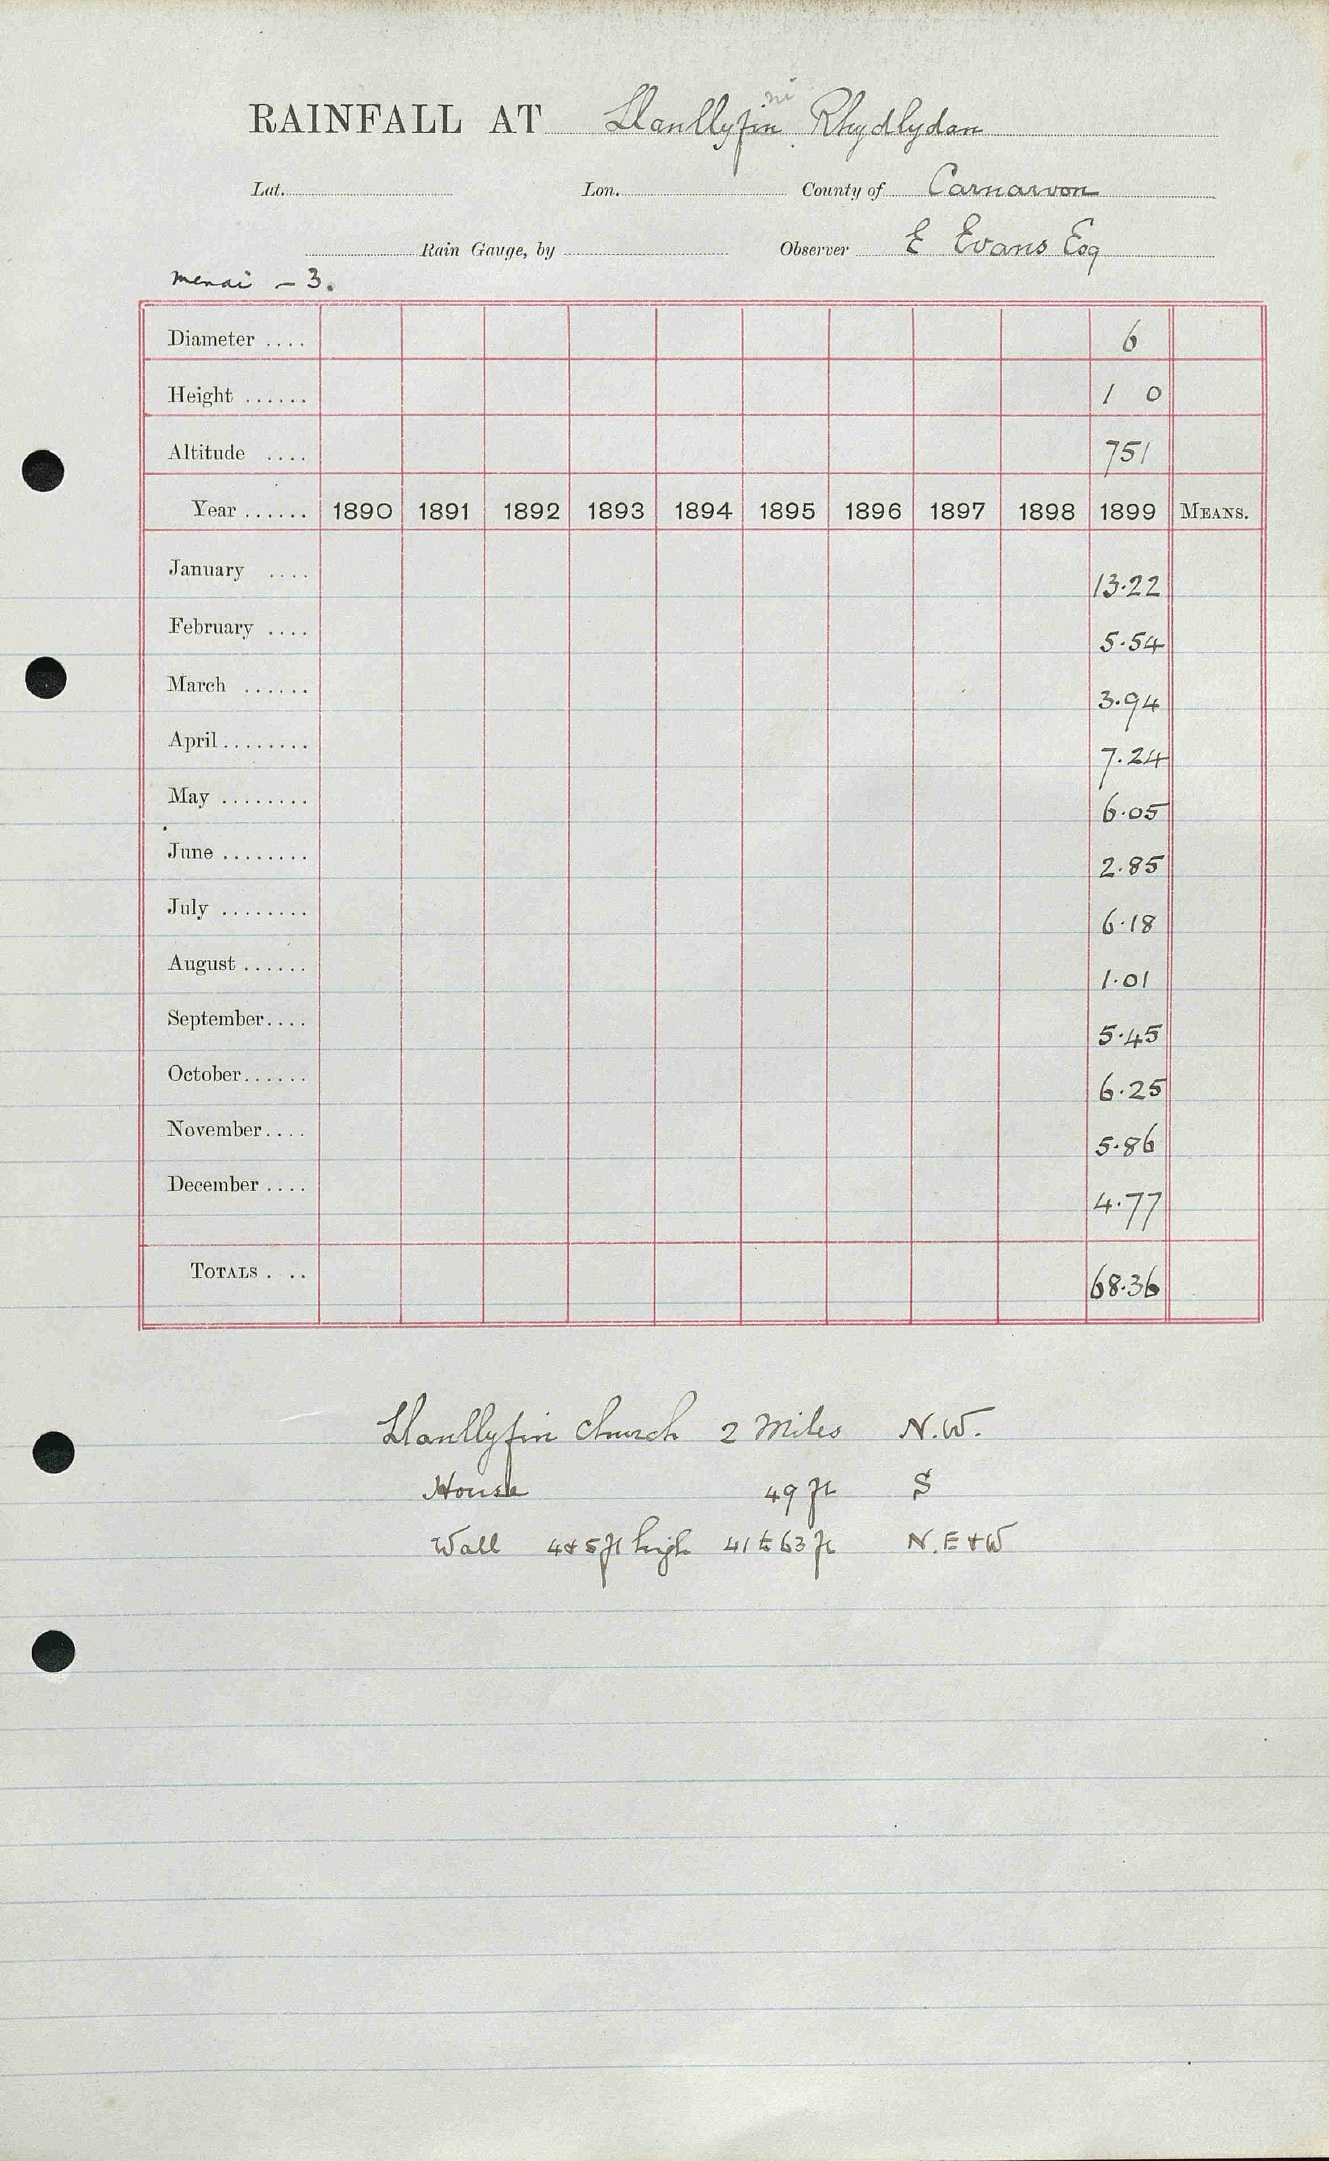 RAINFALL AT Llanllyfin Rhydlydan
Lat. Lon. County of Carnarvon
Rain Gauge, by Observer E Evans Esq
Menai - 3.
Diameter .... 6
Height ...... 1 0
Altitude .... 751
Year ...... 1890 1891 1892 1893 1894 1895 1896 1897 1898 1899 MEANS.
January .... 13.22
February .... 5.54
March ...... 3.94
April ........ 7.24
May ........ 6.05
June ........ 2.85
July ........ 6.18
August ...... 1.01
September.... 5.45
October...... 6.25
November.... 5.86
December .... 4.77
TOTALS . .. 68.36
Llanllyfin Church 2 Miles N.W.
House 49 ft S
Wall 4+5 ft high 41 to 63 ft N.E+W